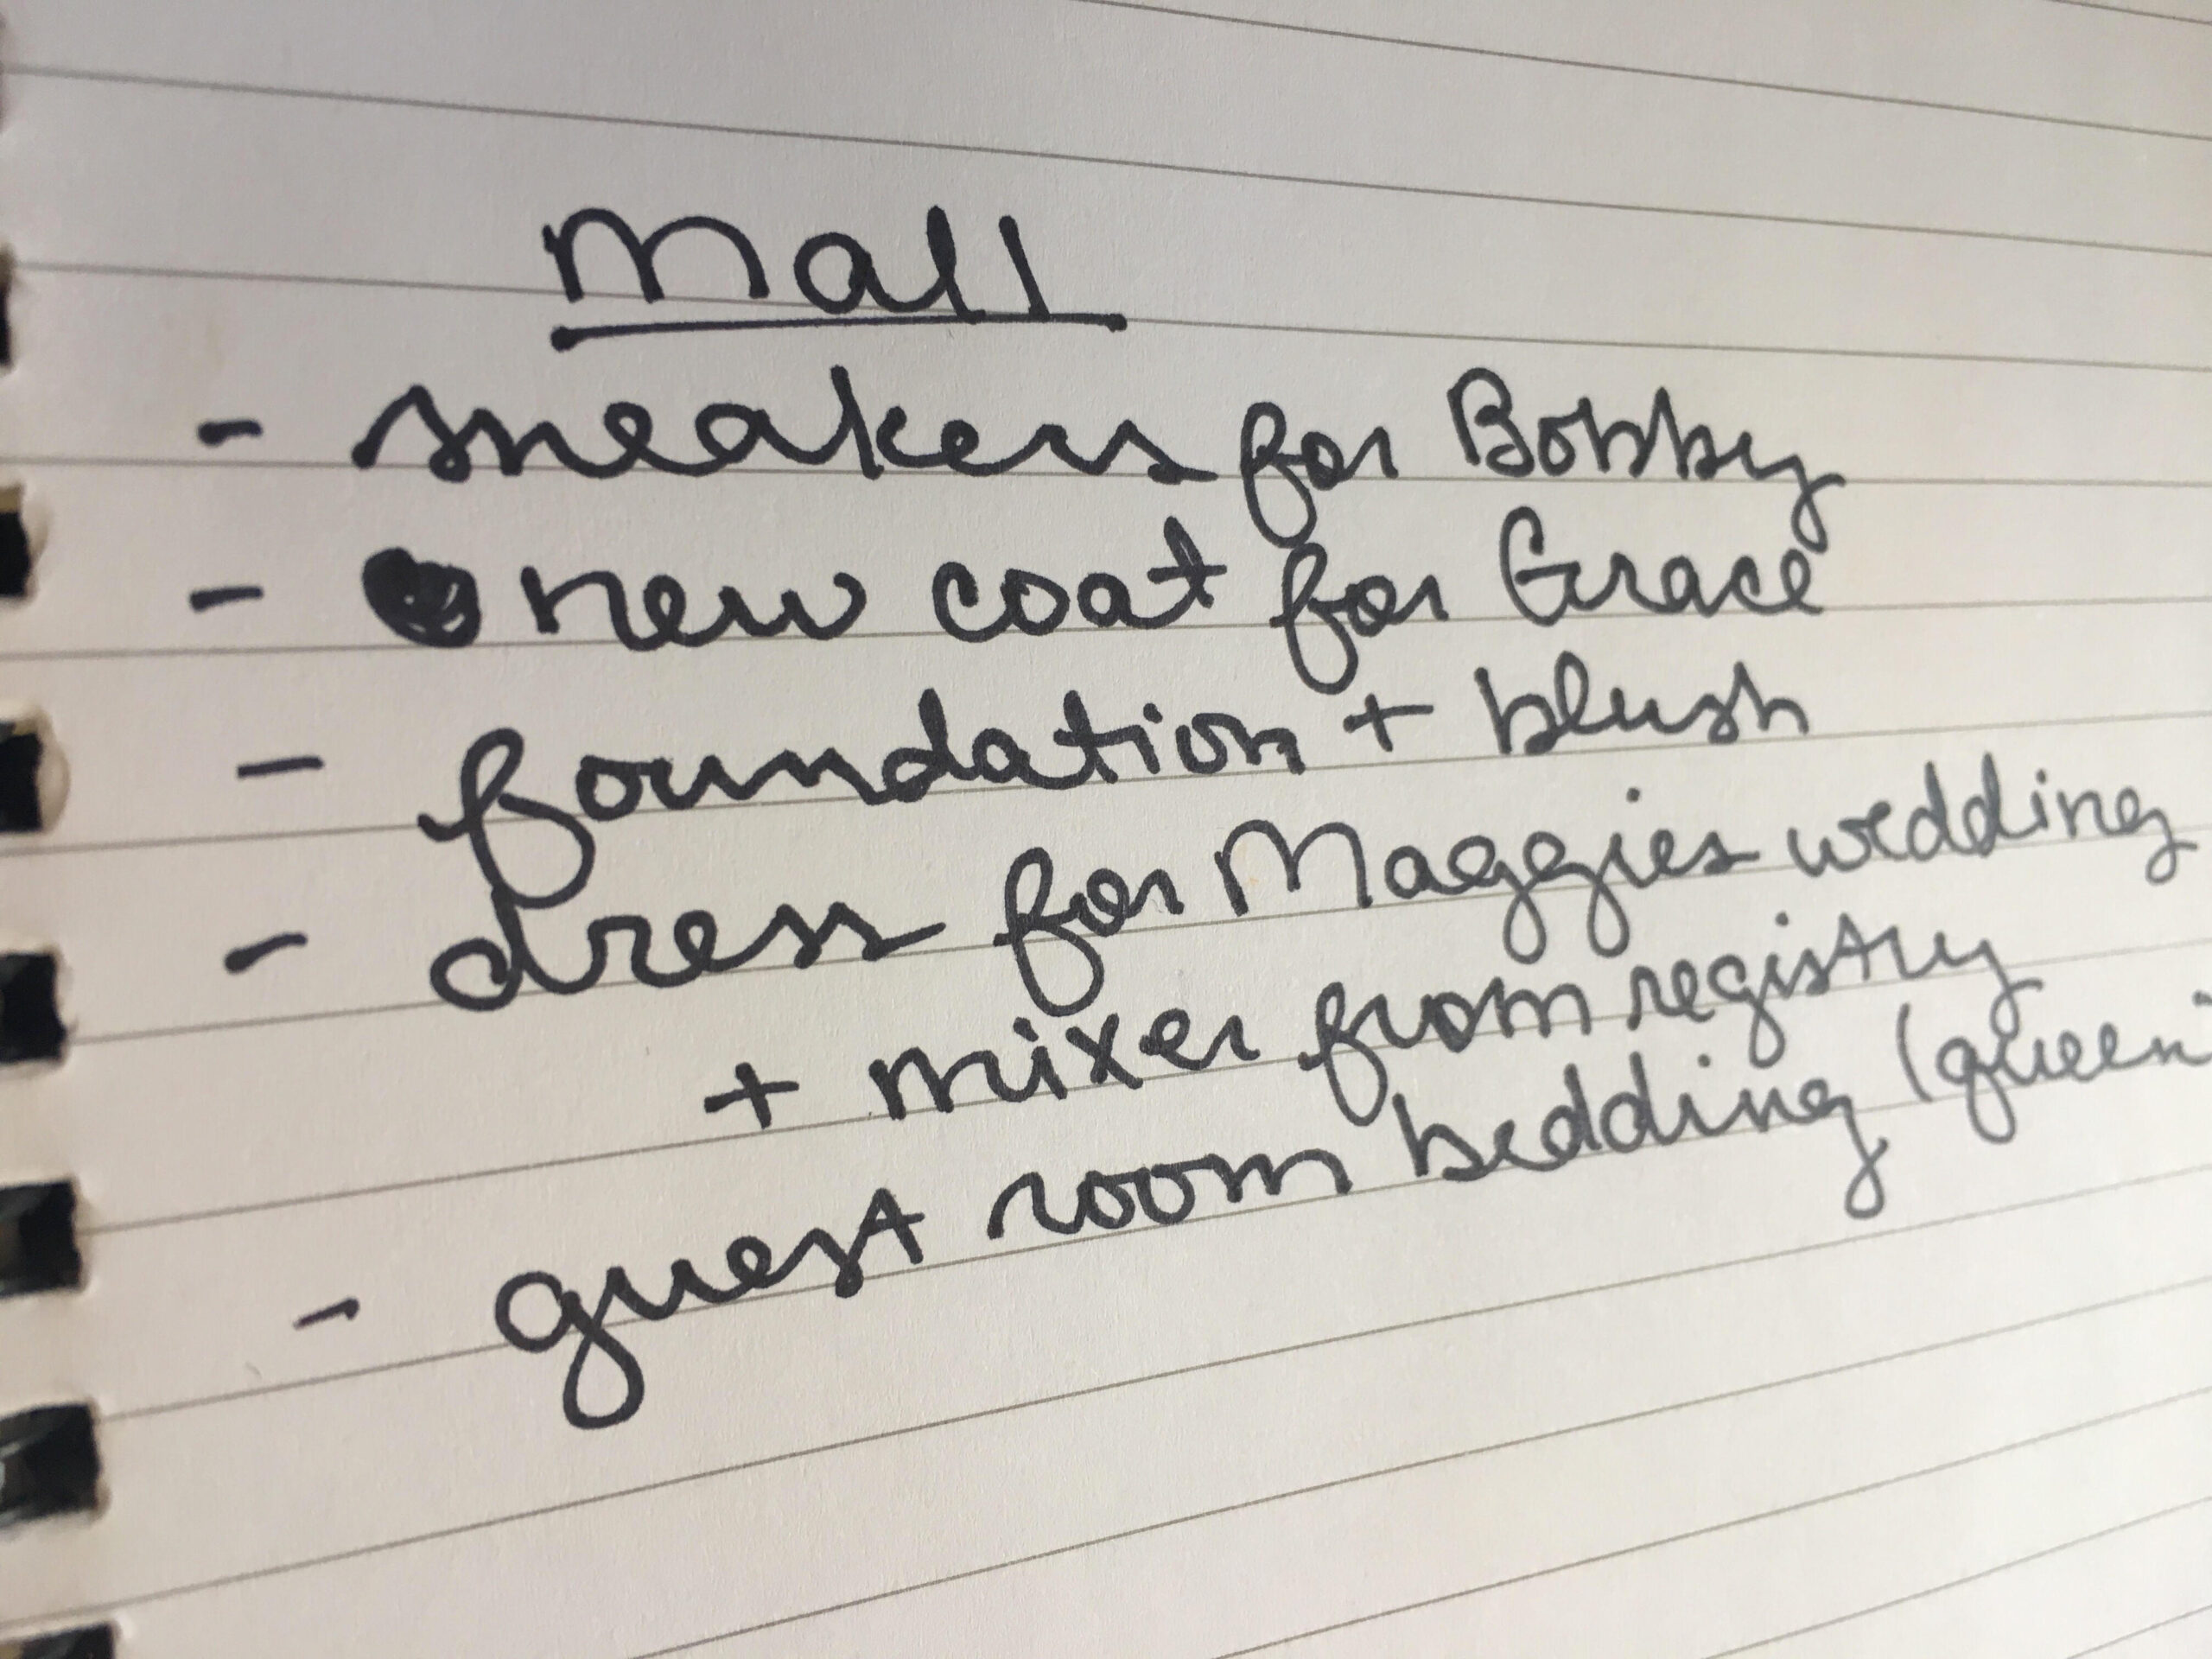 Mall
- sneakers for Bobby
- new coat for Grace
- foundation + blush
- dress for Maggies wedding
+ mixer from registry
- guest room bedding (queen